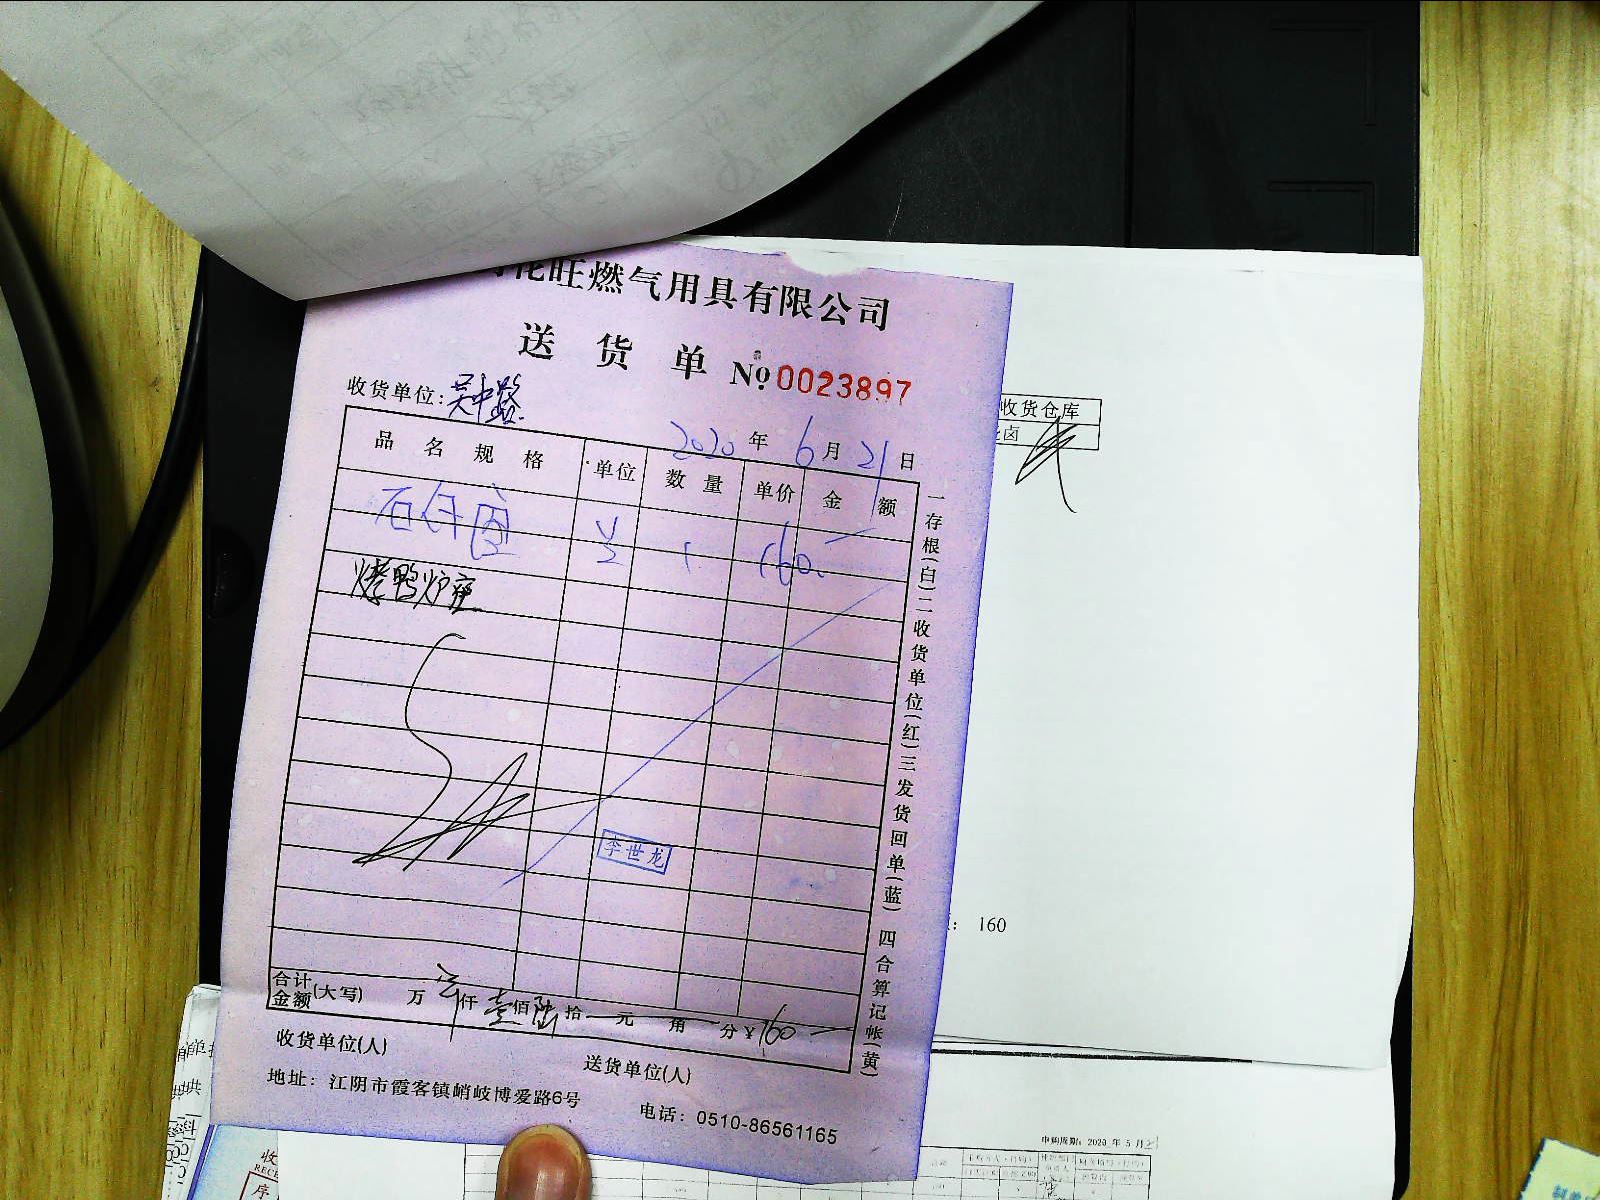 旺燃气用具有限公司
送货单 №0023897
收货单位:吴中路
2020年6月21日
品名规格 单位 数量 单价 金额
1 160.
烤鸭炉座
李世龙
合计金额(大写) 万 仟壹佰陆拾 元 角 分¥160
收货单位(人)
送货单位(人)
地址：江阴市霞客镇峭岐博爱路6号
电话：0510-86561165
一存根(白)二收货单位(红)三发货回单(蓝) 四合算记帐(黄)
收货仓库
卤
: 160
申购周期：2020 年 5 月